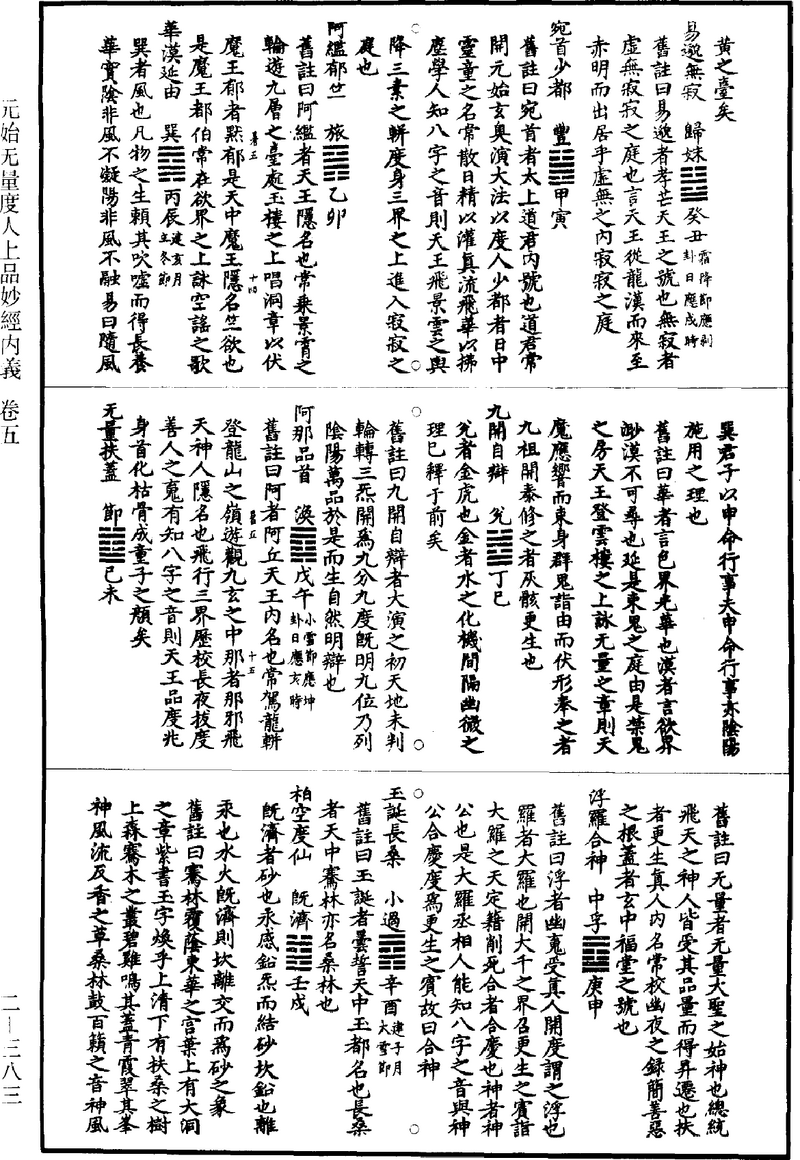 黃之臺矣
易邈無寂　歸妹䷵癸丑霜降節應剝卦日應戌時
舊註曰易邈者孝芒天王之號也無寂者
虛無寂寂之庭也言天王從龍漢而來至
赤明而出居乎虛無之內寂寂之庭
宛首少都　豐䷶甲寅
舊註曰宛首者太上道君內號也道君常
開元始玄奧演大法以度人少都者日中
靈童之名常散日精以灌真流飛華以拂
塵學人知八字之音則天王飛景雲之輿
降三素之軿度身三界之上進入寂寂之
庭也
阿纜郁竺　旅䷷乙卯
舊註曰阿纜者天王隱名也常乘景霄之
輪遊九層之臺處玉樓之上唱洞章以伏
魔王郁者默郁是天中魔王隱名竺欲也
是魔王都伯常在欲界之上詠空謠之歌
華漠延由　巽䷸丙辰建亥月立冬節
巽者風也凡物之生賴其吹噓而得長養
華實陰非風不凝陽非風不融易曰隨風
巽君子以申命行事夫申命行事亦陰陽
施用之理也
舊註曰華者言色界光華也漠者言欲界
渺漠不可尋也延是東鬼之庭由是禁鬼
之房天王登雲樓之上詠无量之章則天
魔應響而束身群鬼詣由而伏形奉之者
九祖開泰修之者灰骸更生也
九開自辯　兌䷹丁巳
兌者金虎也金者水之化機間隔幽微之
理已釋于前矣
舊註曰九開自辯者大演之初天地未判
輪轉三炁開爲九分九度旣明九位乃列
陰陽萬品於是而生自然明辯也
阿那品首　渙䷺戊午小雪節應坤卦日應亥時
舊註曰阿者阿丘天王內名也常駕龍軿
登龍山之嶺遊觀九玄之中那者那邪飛
天神人隱名也飛行三界歷校長夜拔度
善人之䰟有知八字之音則天王品度兆
身首化枯骨成童子之顏矣
无量扶蓋　節䷻己未
舊註曰无量者无量大聖之始神也總統
飛天之神人皆受其品量而得昇遷也扶
者更生真人內名常校幽夜之錄簡善惡
之根蓋者玄中福堂之號也
浮羅合神　中孚䷼庚申
舊註曰浮者幽䰟受真人開度謂之浮也
羅者大羅也開大千之界召更生之賓詣
大羅之天定籍削死合者合慶也神者神
公也是大羅丞相人能知八字之音與神
公合慶慶爲更生之賓故曰合神
玉誕長桑　小過䷽辛酉建子月大雪節
舊註曰玉誕者曇誓天中玉都名也長桑
者天中騫林亦名桑林也
柏空度仙　旣濟䷾壬戌
旣濟者砂也汞感鉛炁而結砂坎鉛也離
汞也水火旣濟則坎離交而爲砂之象
舊註曰騫林覆陰東華之宮葉上有大洞
之章紫書玉字煥乎上清下有扶桑之樹
上森騫木之叢碧雞鳴其蓋青霞翠其峯
神風流反香之草桑林鼓百籟之音神風
元始无量度人上品妙經內義　卷五
二—三八三